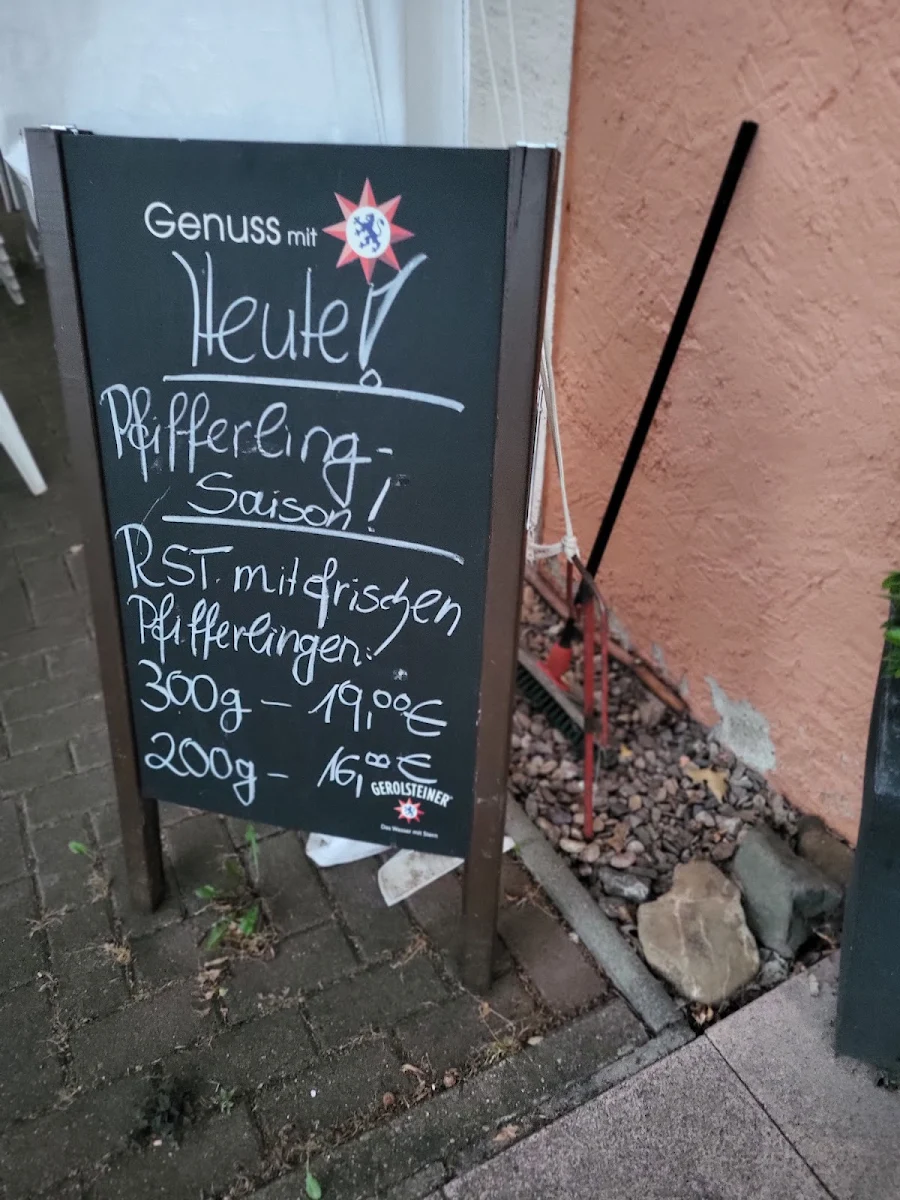 Genuss mit
Heute!
Pfifferling-
Saison!
RST. mit frischen
Pfifferlingen:
300g - 19,00€
200g - 16,00€
GEROLSTEINER
Das Wasser mit Stern